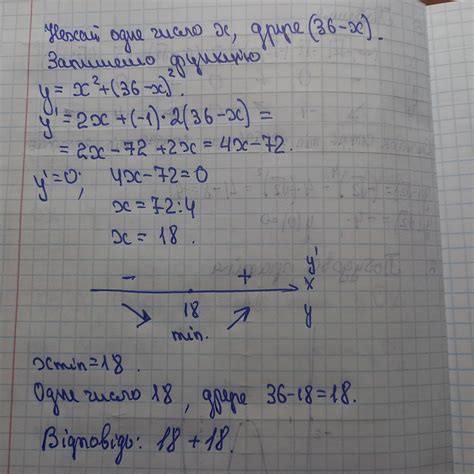 Нехай одне число x, друге (36-x).
Запишемо функцію
y = x² + (36-x)².
y' = 2x + (-1)·2(36-x) =
= 2x - 72 + 2x = 4x - 72.
y' = 0; 4x - 72 = 0
x = 72 : 4
x = 18.
- + y'
x
18 y
min.
xmin = 18.
Одне число 18, друге 36-18 = 18.
Відповідь: 18 + 18.